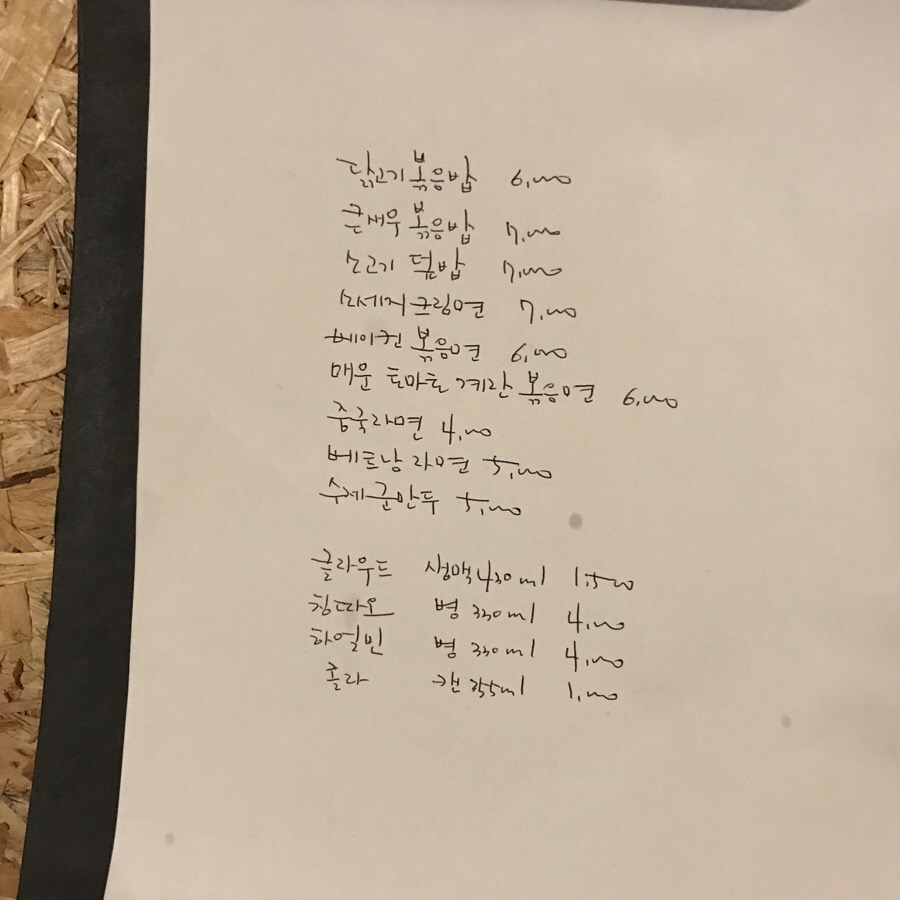 닭고기 볶음밥 6,000
큰새우 볶음밥 7,000
소고기 덮밥 7,000
소세지크림면 7,000
베이컨 볶음면 6,000
매운 토마토 계란 볶음면 6,000
중국라면 4,000
베트남라면 5,000
수제군만두 5,000
클라우드 생맥 430ml 1,500
칭따오 병 330ml 4,000
하얼빈 병 330ml 4,000
콜라 캔 355ml 1,000